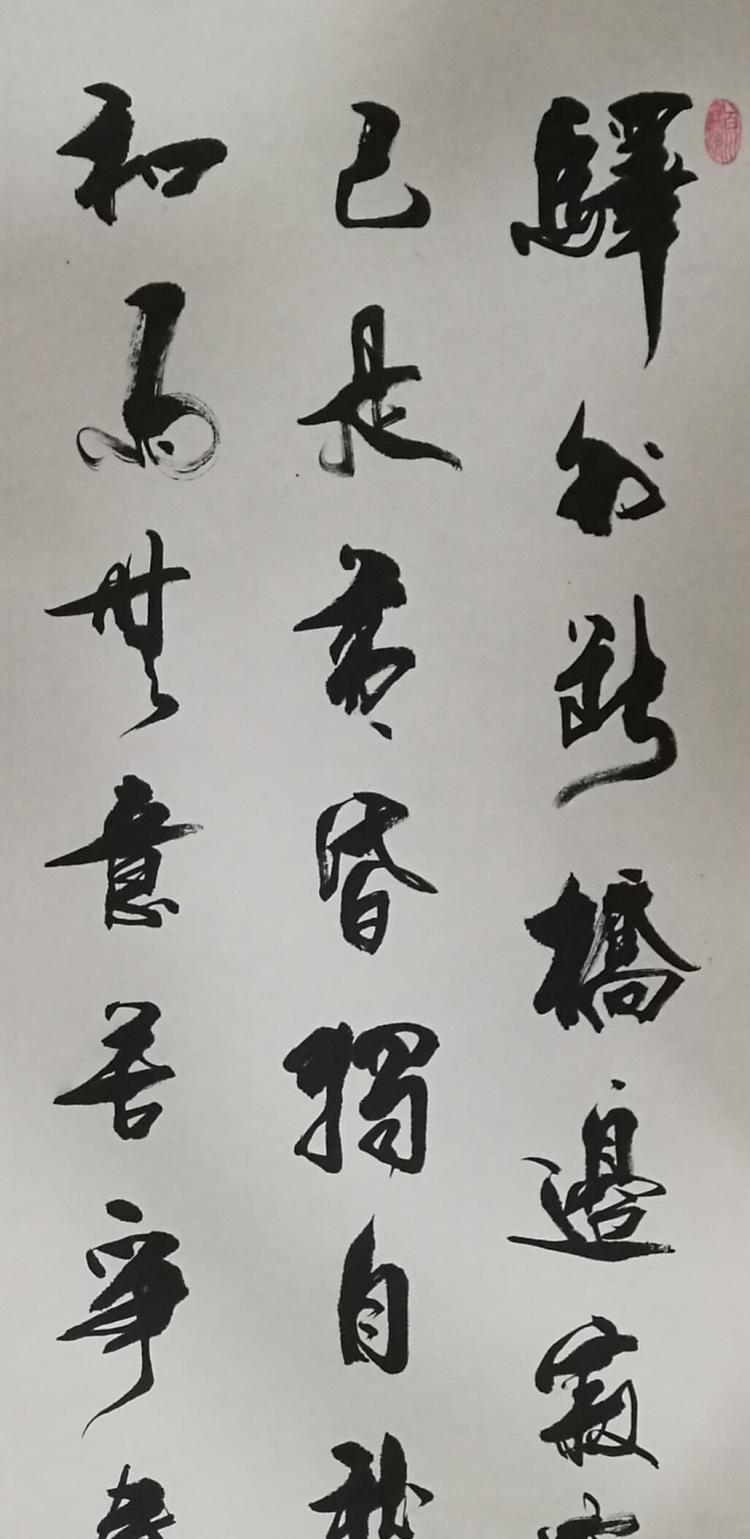 驛外斷橋邊寂
已是黃昏獨自
和雨無意苦爭